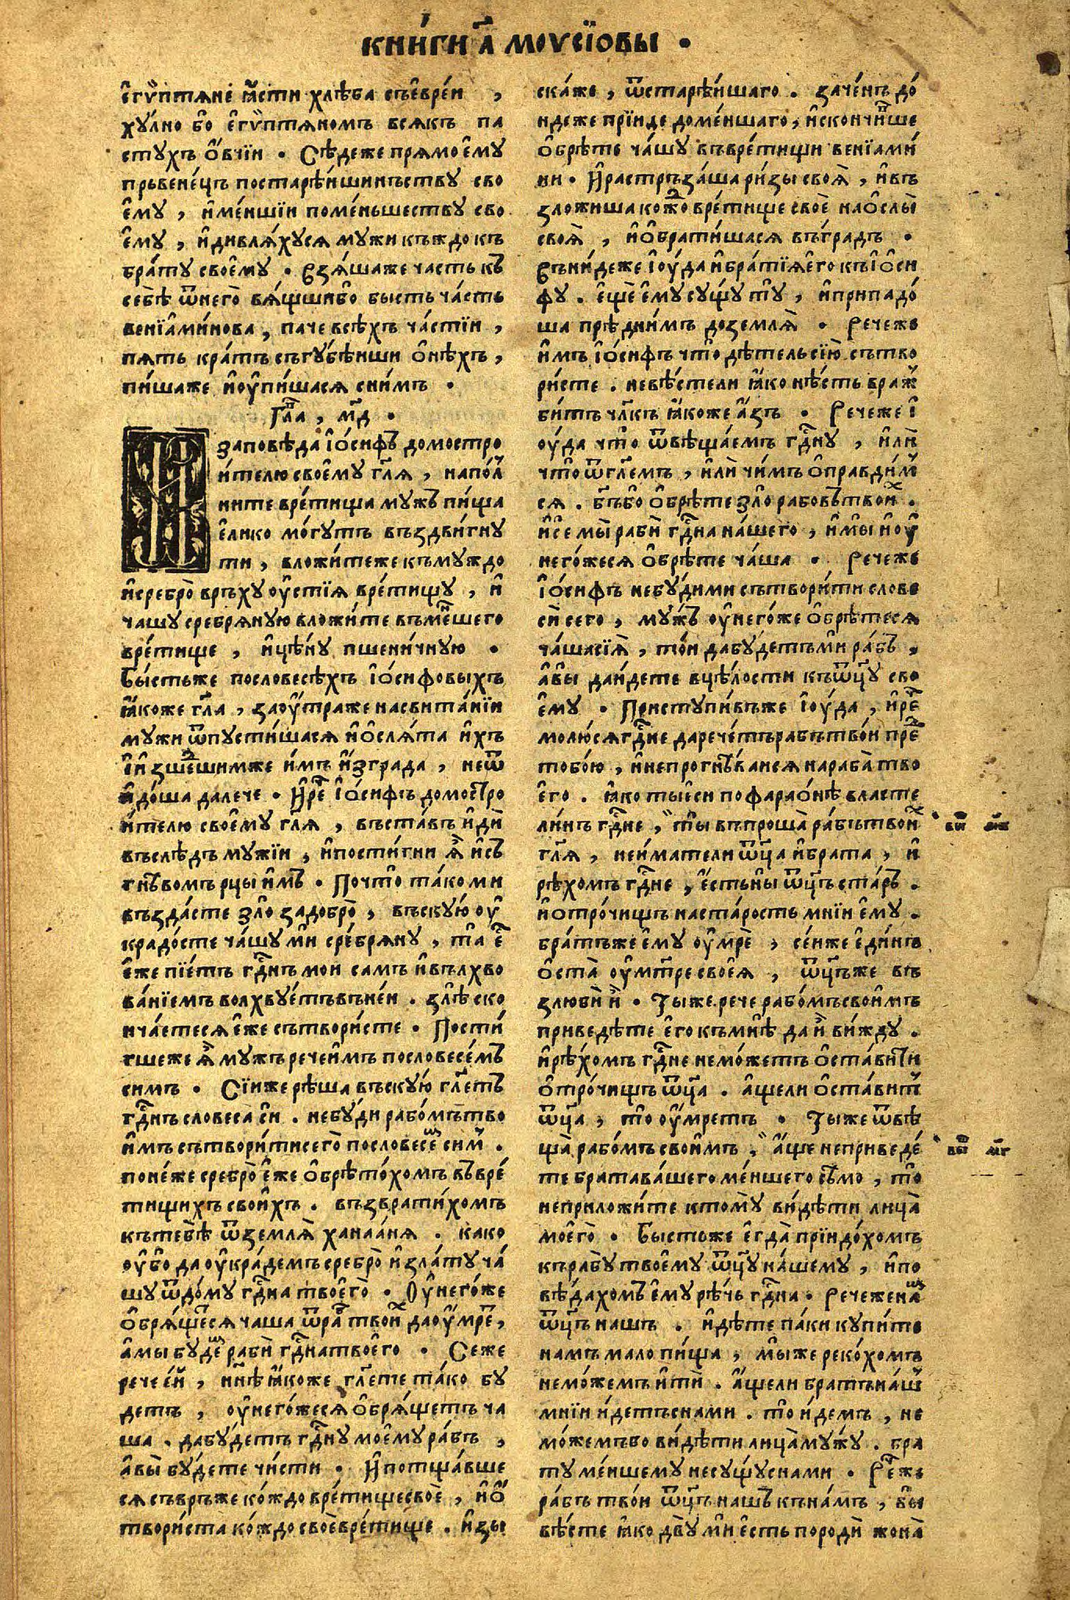 КНИ́ГИ А҃ МОѴСІ́ОВЫ ·
є҆гѷптяне ꙗ҆сти хлѣба съєврєи ,
хулно бо є҆гѷптяномъ всякъ па
стухъ ѻ҆вчїи · Сѣдеже прямоє҆му
прьвенецъ постарѣишиньству сво
є҆му , и҆меншїи поменьшеству сво
є҆му , и҆дивляхуся мужи къждо къ
брату своє҆му · Взяшаже часть къ
себѣ ѿнего̀ вѧщшибо бысть часть
венїаминова , паче всѣхъ частїи ,
пять кратъ съгубѣиши ѻ҆нѣхъ ,
пїшаже и҆оупишася сними ·
Гл҃а , мд҃ ·
Заповѣда іѻ҆сифъ домостро
и҆телю своє҆му гл҃я , напол
ните вретища мужъ пища
є҆лико могутъ въздвигну
ти , вложитеже къмуждо
и҆сребро̀ врьху оу҆стїя вретищу , и҆
чашу сребряную вложите въмншего
вретище , и҆цѣну пшеничную ·
Бысть же пословесѣхъ іѻ҆сифовыхъ
ꙗ҆коже гл҃а , заоу҆траже насвитанїи
мужи ѿпустишася и҆ѻ҆слята и҆хъ
І҆изшєшимже и҆мъ и҆зграда , неѿ
и҆доша далече · И҆рє іѻ҆сифъ домостро
и҆телю своє҆му гл҃я , въставъ и҆ди
въслѣдъ мужїи , и҆постигни ꙗ҆ и҆съ
гнѣвомъ рцы и҆мъ · Почто̀ такоми
въздасте зло̀ задобро̀ , въскую оу҆
крадосте чашу ми сребряну , та є҆
є҆же пїетъ гд҃нъ мои самъ и҆вълхво
ванїемъ волхвуетъвънеи · злѣ ско
нчаетеся є҆же сътвористе · Пости
гшеже ꙗ҆ мужъ речеи҆мъ пословесемъ
симъ · Сїиже рѣша въскую гл҃етъ
гд҃нъ словеса си · небуди рабомътво
и҆мъ сътворитисего̀ пословесє сим ·
понеже сребро̀ є҆же ѻ҆брѣтохомъ въврє
тищихъ своихъ · възвратихомъ
кътебѣ ѿземля̀ ханаанѧ · како
оу҆бо да оу҆крадемъ сребро̀ и҆злату ча
шу ѿдому гд҃на твоє҆го̀ · Оу҆негоже
ѻ҆брѧщеся чаша ѿра твои даоу҆мре ,
а҆мы буде раби гд҃натвоє҆го · Сеже
рече є҆и , и҆ннѣ ꙗ҆коже гл҃ете тако бу
детъ , оу҆негожеся ѻ҆брѧщетъ ча
ша . дабудетъ гд҃ну моє҆му рабъ ,
а҆вы будете чисти · И҆потщавше
ся съврьже кождо вретищесвоѐ , и҆ѿ
твориста кождо своѐвретище . и҆зы
скаже , ѿстарѣишаго . заченъ до
ндеже прїиде доменшаго , и҆скончише
ѻ҆брѣте чашу въвретищи венїами
ни · И҆растрьзаша ризы своя̀ , и҆въ
зложиша кождо вретище своѐ наѻ҆слы̀
своя̀ , и҆ѻ҆братишася въградъ ·
Вънидеже іоуда и҆братїяє҆го къіѻ҆си
фу . є҆ще є҆му сущу ту̀ , и҆припадо
ша прѣдънимъ доземля̀ · Речеже
и҆мъ іѻ҆сифъ что̀ дѣтельсїю сътво
ристе . невѣстели ꙗ҆ко нѣсть враж
битъ члкъ ꙗ҆коже а҆зъ · Речеже і
оуда что̀ ѿвѣщаемъ гд҃ну , и҆ли
что̀ ѿгл҃емъ , и҆ли чимъ ѻ҆правдим
ся . бг҃ъбо ѻ҆брѣте зло̀ рабовътвои .
и҆се мы̀ раби гд҃на нашего , и҆мы и҆оу҆
негожеся ѻ҆брѣте чаша · Речеже
іѻ҆сифъ небудими сътворити слове
си сего , мужъ оу҆негоже ѻ҆брѣтеся
чашасїя̀ , тои дабудетъми рабъ ,
а҆вы даидете вцѣлости къѿцу сво
є҆му · Приступивъже іоуда , и҆рє
молюсягд҃ие даречетърабътвои прє
тобою , и҆непрогнѣваися нараба тво
є҆го . ꙗ҆ко тыеси по фараѻ҆нѣ власте
линъ гд҃не , ты въпроша̀ рабътвои
гл҃я , неиматели ѿца и҆брата , и҆
рѣхомъ гд҃не , є҆стьны ѿцъ старъ .
и҆отрочищъ настарость мнїи є҆му .
братъже є҆му оу҆мрѐ , сеиже є҆динъ
ѻ҆ста̀ оу҆мтре своєя , ѿцъже въ
злюби и҆ · Тыже рече рабомъсвоимъ
приведѣте є҆го къмнѣ да и҆ вижду .
и҆рѣхомъ гд҃не неможетъ ѻ҆ставити
ѻ҆трочищъ ѿца . а҆щели ѻ҆ставит
ѿца , то̀ оу҆мретъ · Тыже ѿвѣ
ща̀ рабомъ своимъ , а҆ще неприведе
те братавашего меншего сѣмо , то̀
неприложите ктому видѣти лица̀
моего̀ · Бысть же є҆гда прїидохомъ
къ рабу твоему ѿцу нашему , и҆по
вѣдахомъ є҆му рѣчь гд҃на · Речежена
ѿцъ нашъ . и҆дѣте паки купите
намъ мало пища , мыже рекохомъ
неможемъ и҆ти . а҆щели братънаш
мнїи и҆детъснами . то и҆демъ , не
можемъбо видѣти лица̀мужу . бра
ту меншему несущуснами · Рєже
рабъ твои ѿцъ нашъ кънамъ , вы
вѣсте ꙗ҆ко двꙋ ми єсть породи жона̀